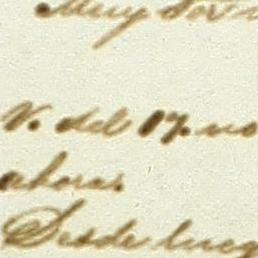 Muy
V. del 17. no
ahora.
Desde lueg